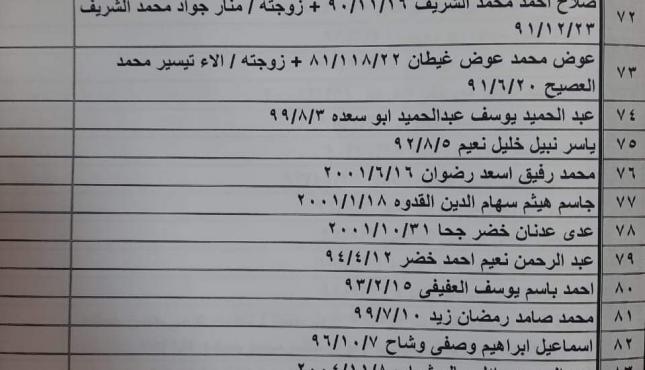 ٧٢ صلاح احمد محمد الشريف ٩٠/١١/١٦ + زوجته / منار جواد محمد الشريف
٩١/١٢/٢٣
٧٣ عوض محمد عوض غيطان ٨١/١١٨/٢٢ + زوجته / الاء تيسير محمد
العصيح ٩١/٦/٢٠
٧٤ عبد الحميد يوسف عبدالحميد ابو سعده ٩٩/٨/٣
٧٥ ياسر نبيل خليل نعيم ٩٢/٨/٥
٧٦ محمد رفيق اسعد رضوان ٢٠٠١/٦/١٦
٧٧ جاسم هيثم سهام الدين القدوه ٢٠٠١/١/١٨
٧٨ عدى عدنان خضر جحا ٢٠٠١/١٠/٣١
٧٩ عبد الرحمن نعيم احمد خضر ٩٤/٤/١٢
٨٠ احمد باسم يوسف العفيفى ٩٣/٢/١٥
٨١ محمد صامد رمضان زيد ٩٩/٧/١٠
٨٢ اسماعيل ابراهيم وصفى وشاح ٩٦/١٠/٧
٨٣